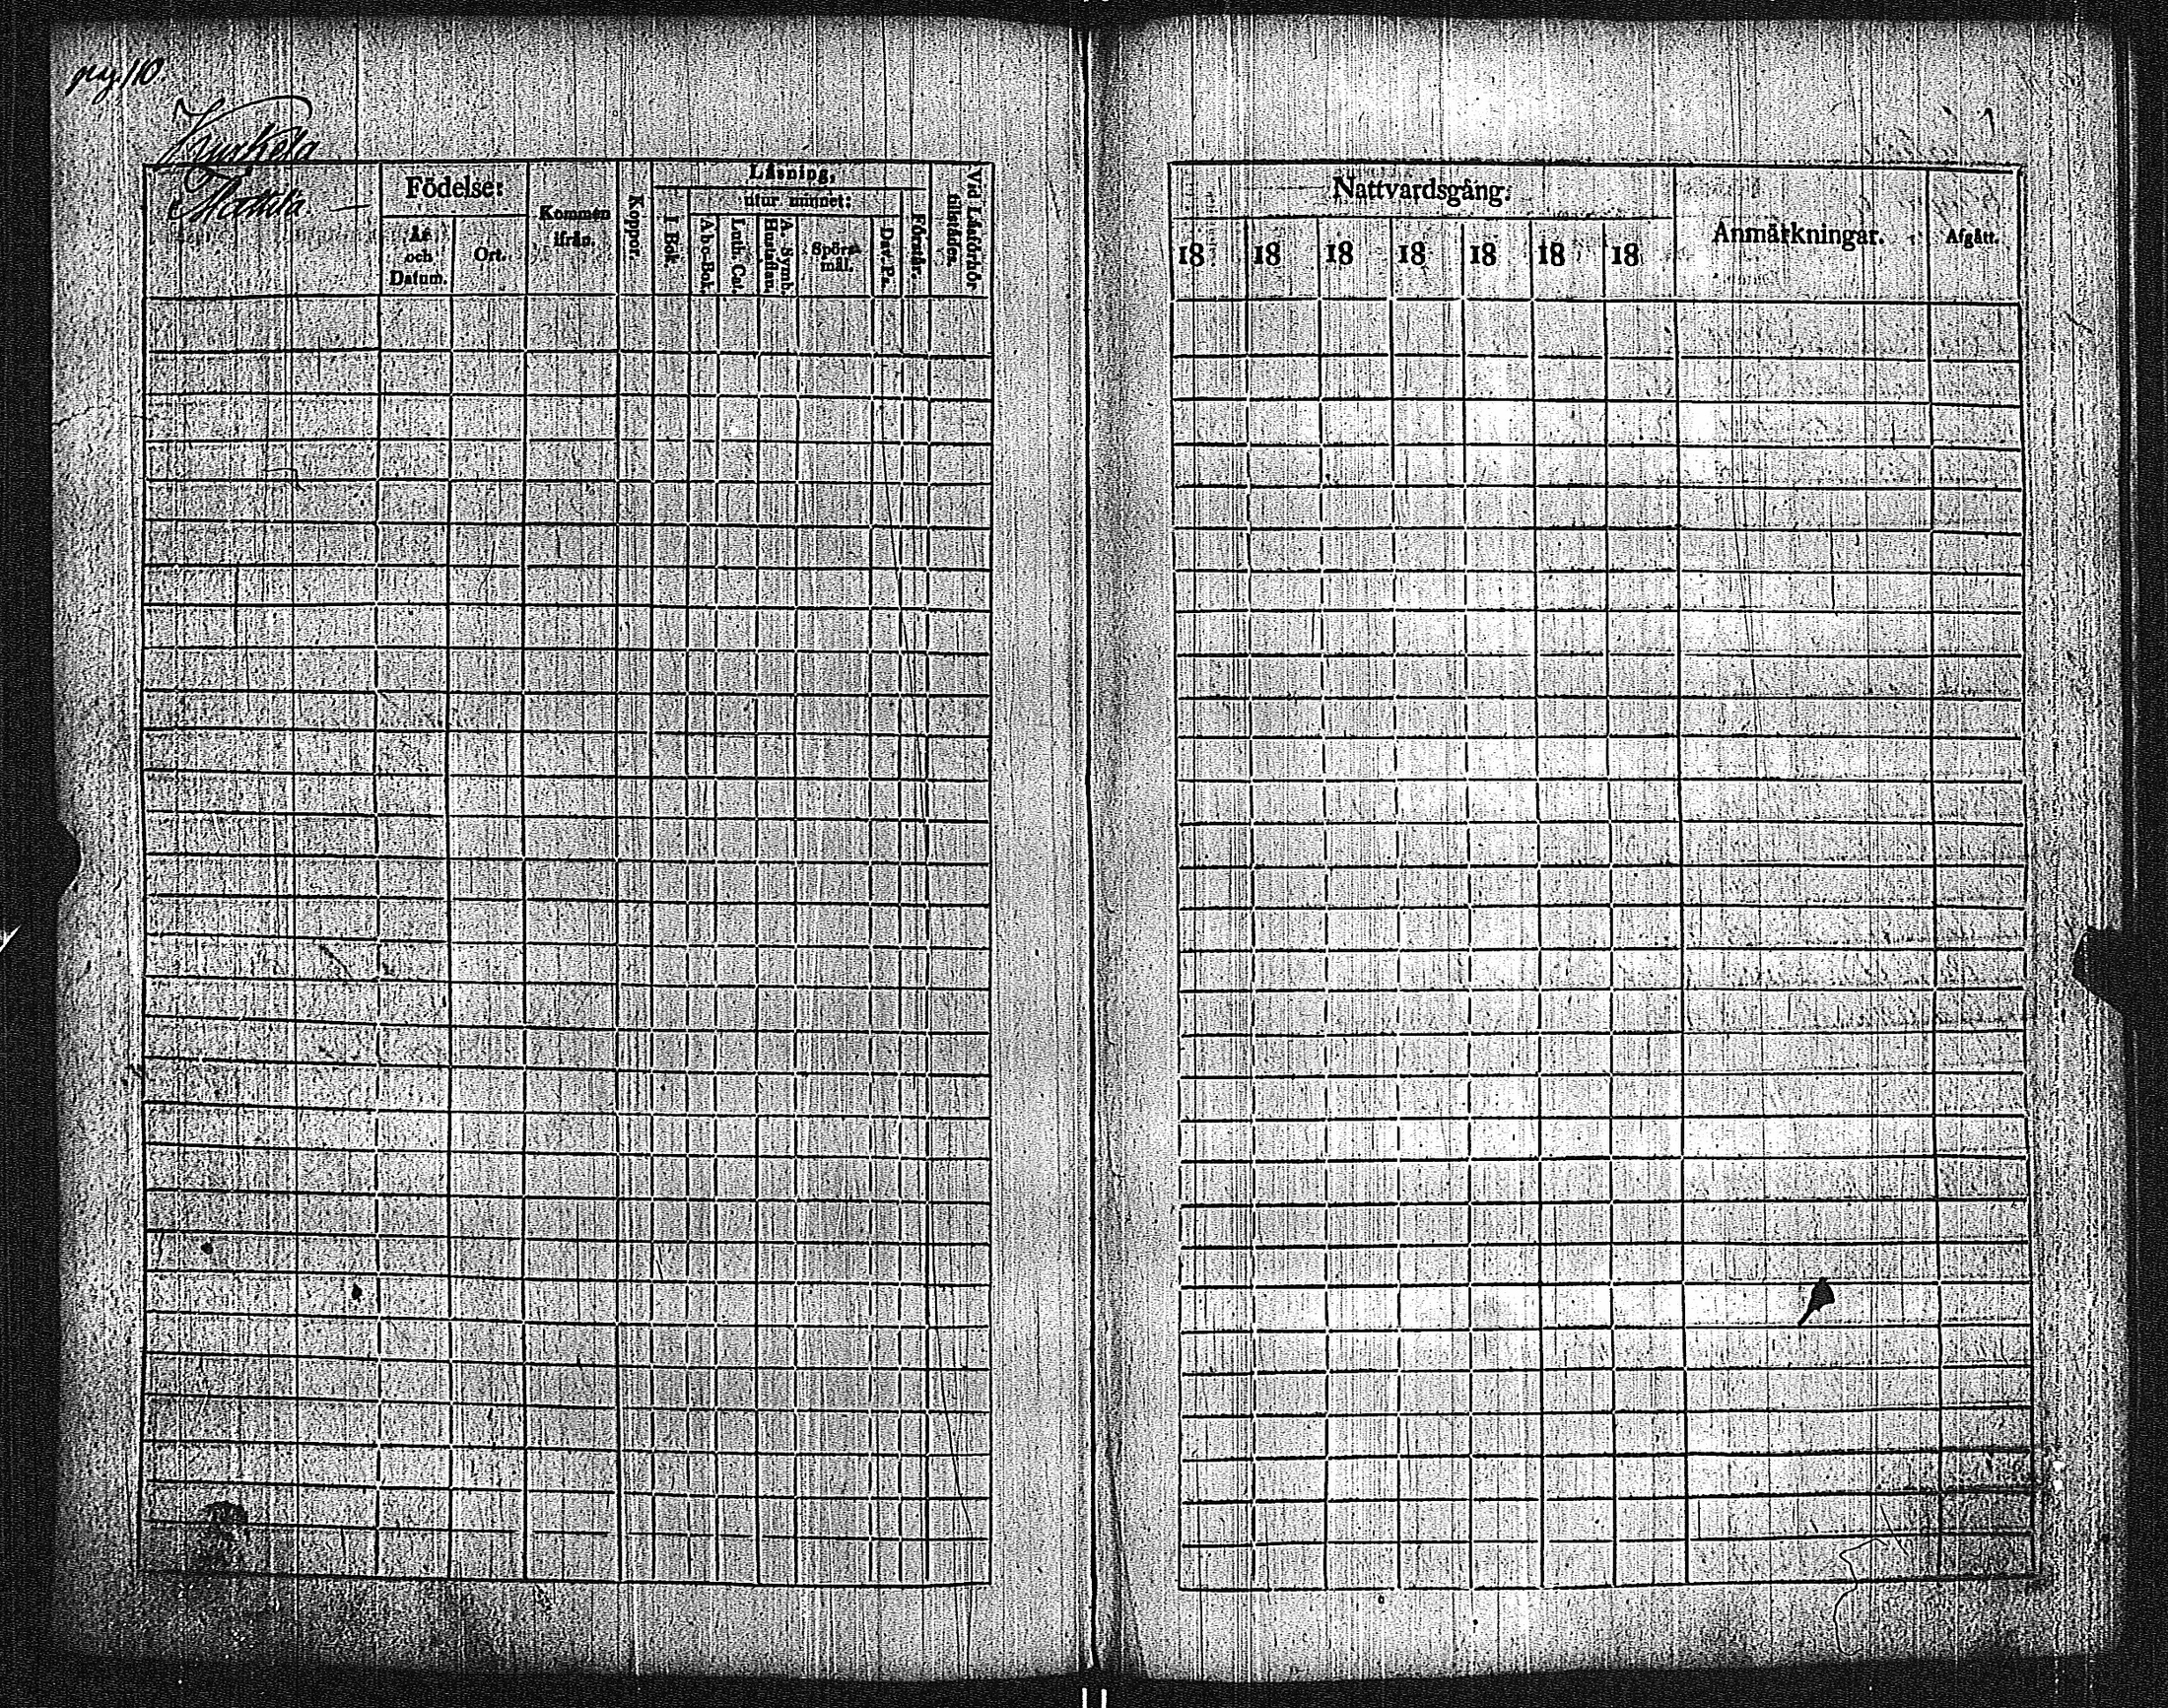 pag 110
Mattila
Födelse:
År och Datum.
Ort.
Kommen ifrån.
Koppor.
Läsning,
I Bok.
utur minnet:
Abc-Bok.
Luth. Cat.
A. Symb. Hustaflan.
Spörs- mål.
Dav. Ps.
Förstår.
Vid Läsförhör tilstädes.
Nattvardsgång.
18 18 18 18 18 18 18
Anmärkningar.
Afgått.